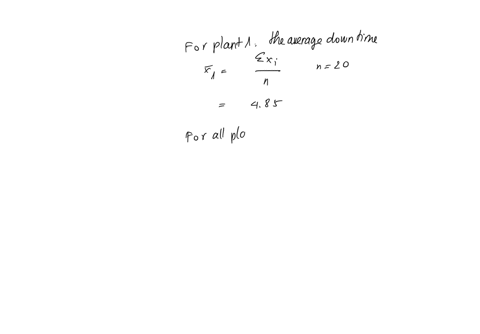 For plant 1, the average down time
x̄₁ = Σxᵢ / n    n = 20
= 4.85
For all plo